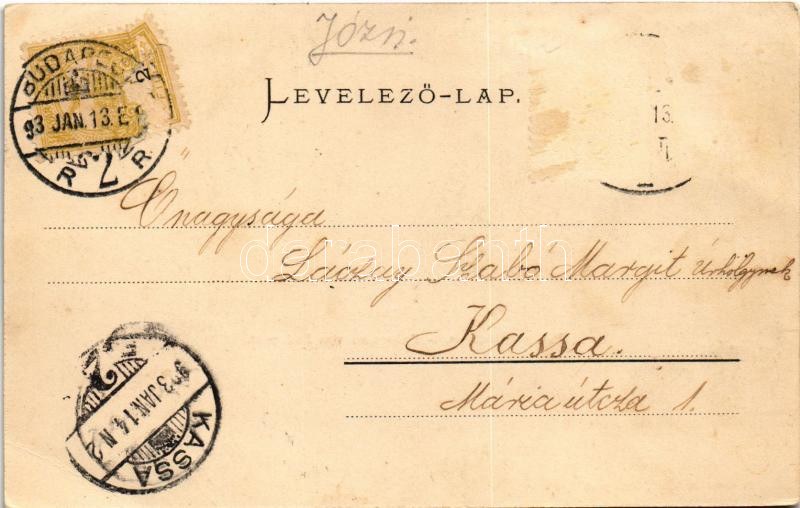 Józsi.
LEVELEZŐ-LAP.
BUDAPEST
93 JAN. 13. E
R. 7. R
13.
Őnagysága
Láczay Szabó Margit úrhölgynek
Kassa.
Mária útcza 1.
903 JAN 14. N 2
KASSA
darabanth